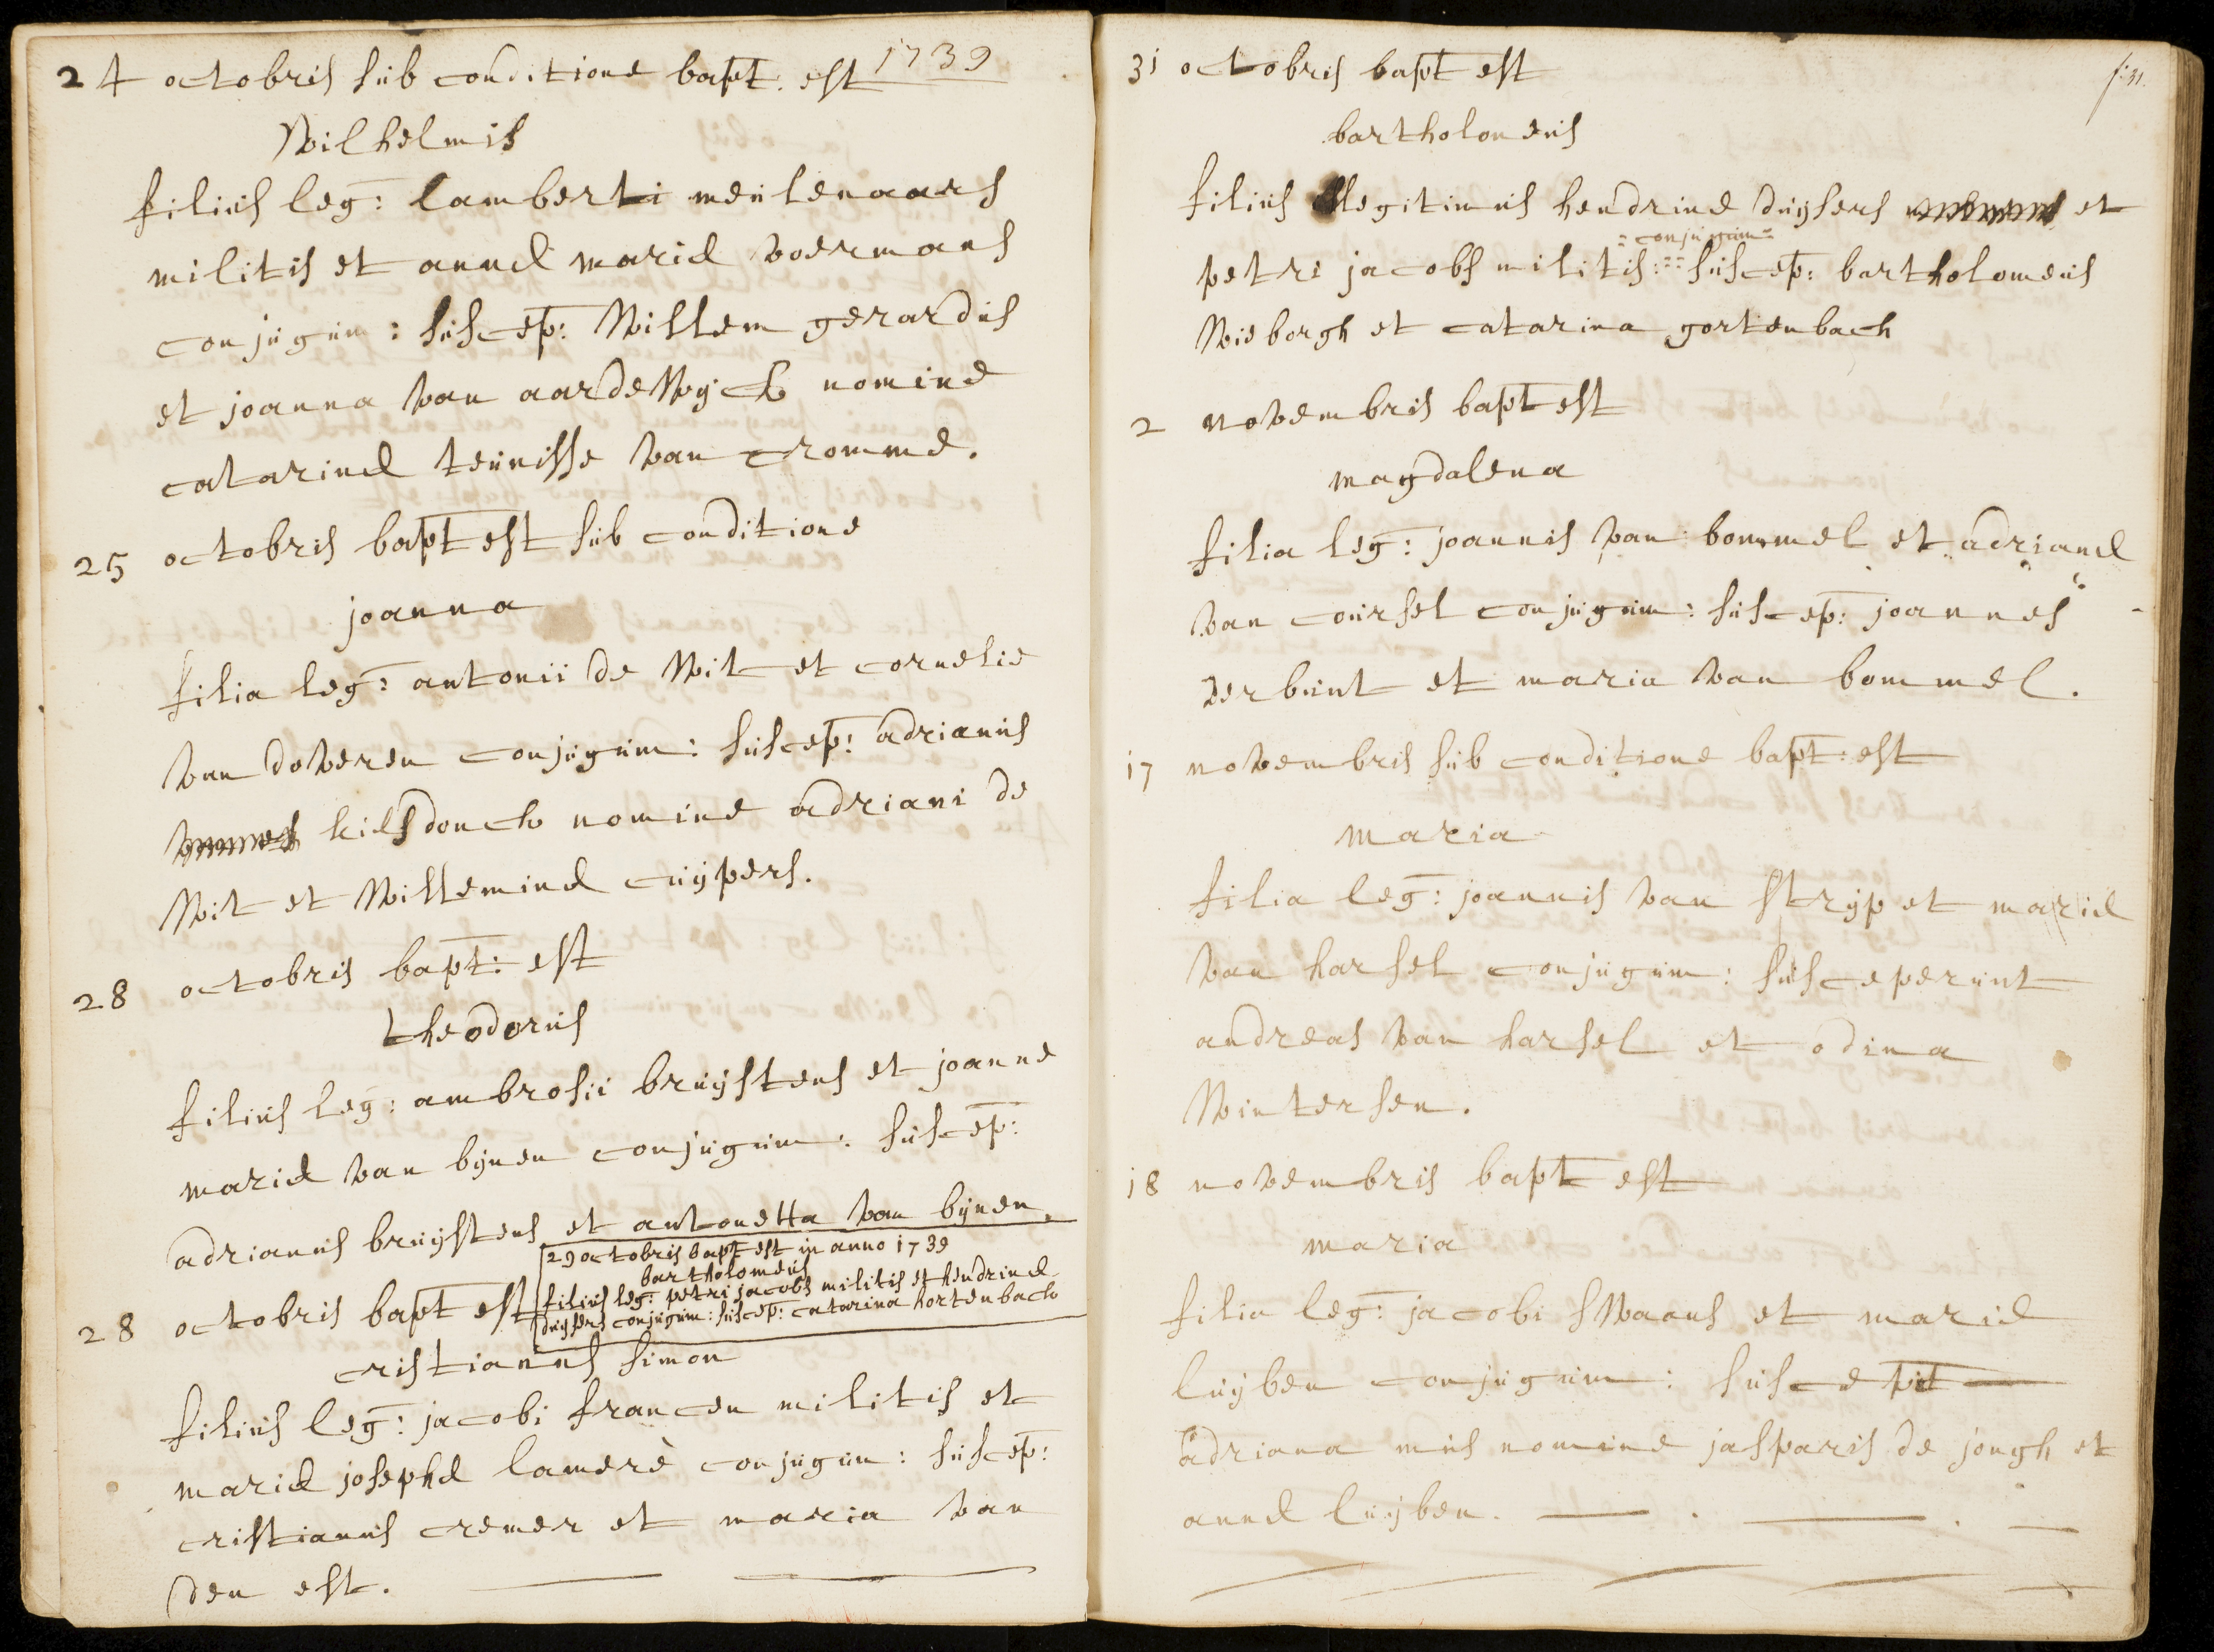 1739
24 octobris sub conditione bapt. est
Wilhelmis
filius leg: lamberti meulenaars
militis et annæ mariæ voermans
conjugum: suscep: Willem gerardus
et joanna van aardeWyck nomine
catarinæ teunisse van cromme.
25 octobris bapt est sub conditione
joanna
filia leg: antonii de Wit et cornelie
van doveren conjugum: suscep: adrianus
kilsdonck nomine adriani de
Wit et Willeminæ cuijpers.
28 octobris bapt: est
theodorus
filius leg: ambrosii bruijstens et joanne
mariæ van bijnen conjugum: suscep:
adrianus bruijstens et antonetta van bijnen.
29 octobris bapt est in anno 1739
bartholomeus
filius leg: petri jacobs militis et hendrinæ
duijsers conjugum: suscep: catarina hortenbach
28 octobris bapt est
cristianus simon
filius leg: jacobi francen militis et
mariæ josephæ lamerè conjugum: suscep:
cristianus cremer et maria van
den est.
f:31.
31 octobris bapt est
bartholomeus
filius legitimus hendrine duijsers et
=conjugum=
petri jacobs militis: suscep: bartholomeus
Wieborgh et catarina gortenbach
2 novembris bapt est
magdalena
filia leg: joannis van bommel et adrianæ
van coursel conjugum: suscep: joannes
verbunt et maria van bommel.
17 novembris sub conditione bapt: est
maria
filia leg: joannis van strijp et mariæ
van harsel conjugum: susceperunt
andreas van harsel et odina
Wintersen.
18 novembris bapt est
maria
filia leg: jacobi sWaans et mariæ
luijben conjugum: suscepit
adriana mus nomine jasparis de jongh et
annæ luijben.